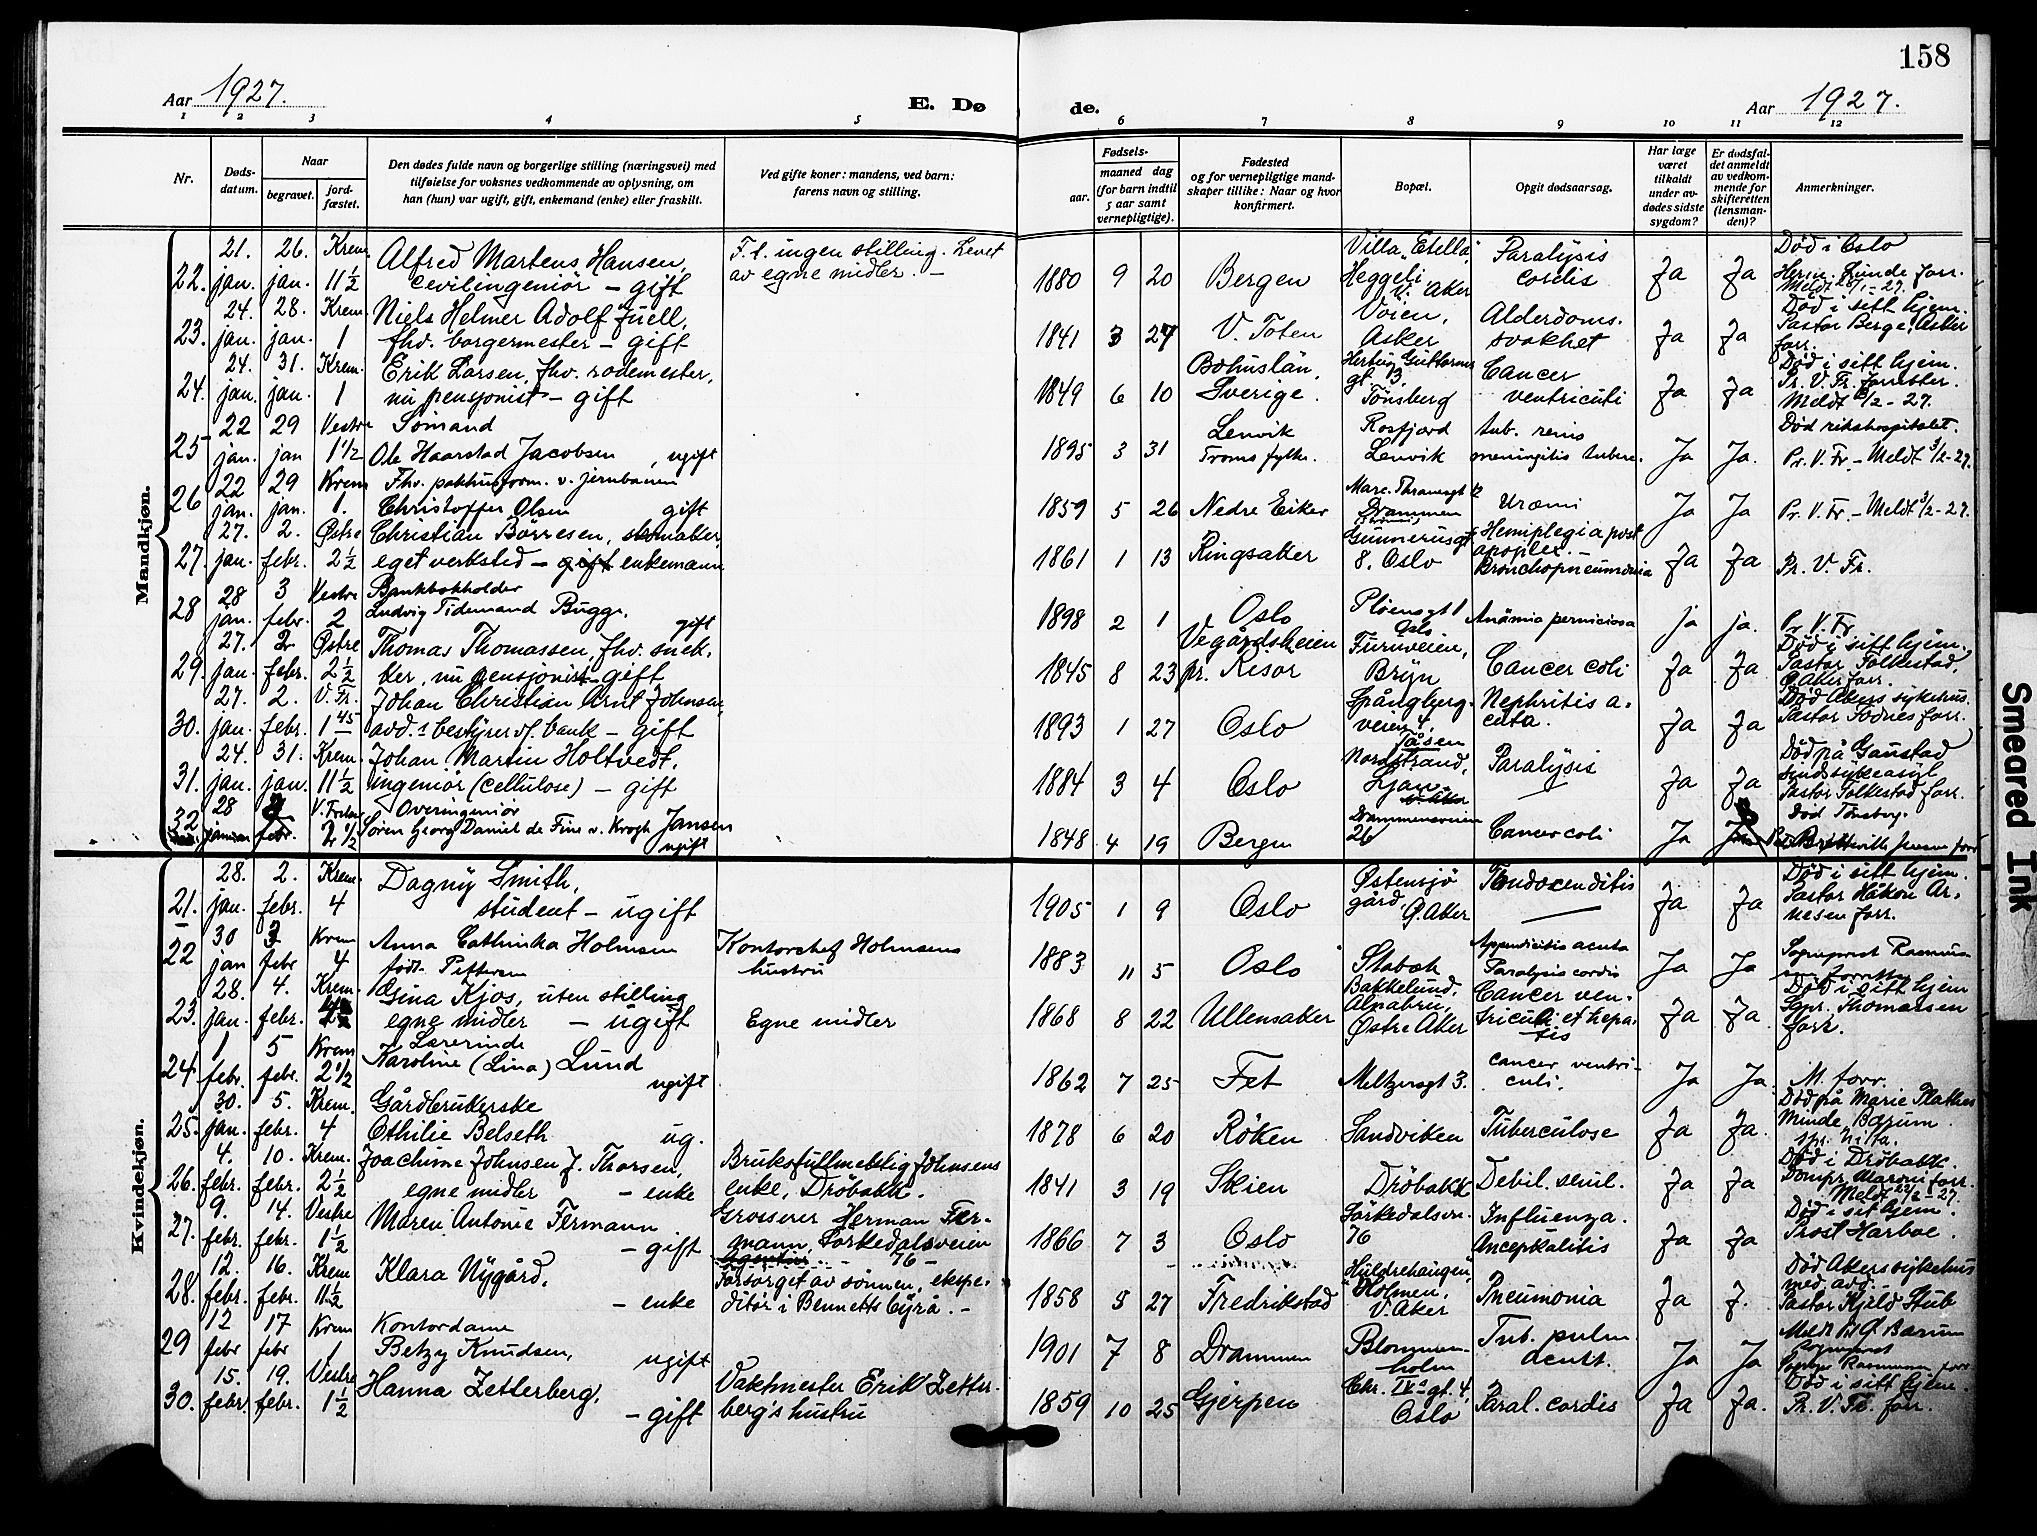 158
Aar 1927.
E. Dø de.
Aar 1927.
1 2 3 4 5 6 7 8 9 10 11 12
Nr.
Døds-
datum.
Naar
begravet.
jord-
fæstet.
Den dødes fulde navn og borgerlige stilling (næringsvei) med
tilføielse for voksnes vedkommende av oplysning, om
han (hun) var ugift, gift, enkemand (enke) eller fraskilt.
Ved gifte koner: mandens, ved barn:
farens navn og stilling.
Fødsels-
aar.
maaned dag
(for barn indtil
5 aar samt
vernepligtige).
Fødested
og for vernepligtige mand-
skaper tillike: Naar og hvor
konfirmert.
Bopæl.
Opgit dødsaarsag.
Har læge
været
tilkaldt
under av-
dødes sidste
sygdom?
Er dødsfal-
det anmeldt
av vedkom-
mende for
skifteretten
(lensman-
den)?
Anmerkninger.
Mandkjøn.
21. 26. Krem. Alfred Martens Hansen, F. t. ingen stilling. Levet Villa "Estella", Paralysis Død i Oslo
22. jan. jan. 11 1/2 civilingeniør – gift av egne midler. – 1880 9 20 Bergen Heggeli V. Aker cordis Ja Ja Herm. Lunde forr.
Meldt 28/1-27.
24. 28. Krem. Niels Helmer Adolf Juell, Voien, Alderdoms- Død i sitt hjem.
23. jan. jan. 1 fhv. borgermester – gift 1841 3 27 V. Toten Asker svakhet Ja Ja Pastor Berge, Asker
forr.
24. 31. Krem. Erik Larsen, fhv. rodemester, Bohuslän, Hertug Guttorms Cancer Død i sitt hjem.
24. jan. jan. 1 nu pensjonist – gift 1849 6 10 Sverige. gt. 13, Tønsberg ventriculi Ja Ja Pr. V. Fr. forretter.
Meldt /2-27.
22 29 Vestre Sømand Lenvik Rosfjord tub. renis Død rikshospitalet.
25 jan. jan 1 1/2 Ole Haarstad Jacobsen, ugift 1895 3 31 Troms fylke. Lenvik meningitis tuberc. Ja Ja. Pr. V. Fr – Meldt 3/2-27.
22 29 Krem Fhv. pakhusform. v. jernbanen Marc. Thranesgt 12
26 jan. jan. 1. Christoffer Olsen gift 1859 5 26 Nedre Eiker Drammen Uræmi Ja Ja Pr. V. Fr. – Meldt 3/2-27.
27. 2. Østre Christian Børresen, skomaker, Gunnerusgt Hemiplegia post
27. jan. febr. 2 1/2 eget verksted – gift enkemann 1861 1 13 Ringsaker 8. Oslo apoplex. – Bronchopneumonia Ja Ja Pr. V. Fr.
28 3 Vestre Bankbokholder
28 jan. febr. 2 Ludvig Tidemand Bugge. gift 1898 2 1 Oslo Pløensgt 1 Oslo Anämia perniciosa ja ja. Pr V. Fr
27. 2. Østre Thomas Thomassen, fhv. snek- Vegårdsheien Furuveien, Død i sitt hjem.
29. jan. febr. 2 1/2 ker, nu pensjonist – gift 1845 8 23 pr. Risör Bryn Cancer coli Ja Ja Pastor Folkestad,
Ø. Aker forr.
27. 2. V. Fr. Johan Christian Arnt Johnsen, Spångberg- Nephritis a- Død Akers sykehus.
30. jan. febr. 1 45 avd.s bestyrer v/ bank – gift 1893 1 27 Oslo veien 4, Tåsen cuta. Ja Ja Pastor Fodnes forr.
24. 31. Krem. Johan Martin Holtvedt, Nordstrand, Død på Gaustad
31. jan. jan. 11 1/2 ingeniør (cellulose) – gift 1884 3 4 Oslo Ljan. Paralysis Ja Ja sindssykeasyl
Pastor Folkestad forr.
28 V. Frelser Overingeniør Drammensveien Død Tønsberg.
32 januar febr. 2 1/2 Søren Georg Daniel de Fine v. Krogh Jansen ugift 1848 4 19 Bergen 26 Cancer coli Ja
Kvindekjøn.
28. 2. Krem. Dagny Smith, Østensjø Død i sitt hjem.
21. jan. febr. 4 student – ugift 1905 1 9 Oslo gård, Ø. Aker Endocarditis Ja Ja Pastor Håkon Ar-
nesen forr.
30 3 Krem Anna Cathinka Holmsen Kontorchef Holmsens Appendicitis acuta Sogneprest Rasmus-
22 jan febr 4 født Pettersen hustru 1883 11 5 Oslo Stabæk Paralysis cordis Ja Ja sen forretter
28. 4. Krem. Gina Kjos, uten stilling Bakkelund, Cancer ven- Død i sitt hjem
23. jan. febr. egne midler – ugift Egne midler 1868 8 22 Ullensaker Alnabru, Østre Aker triculi et hepa- tis Ja Ja Spr. Thomassen
forr.
1 5 Krem Lærerinde
24 febr. febr. 2 1/2 Karoline (Lina) Lund ugift 1862 7 25 Fet Meltzersgt 3. cancer ventri- culi. Ja Ja. M. forr.
30. 5. Krem. Gårdbrukerske Død på Marie Plathes
25. jan. febr. 4 Othilie Belseth ug. 1878 6 20 Røken Sandviken Tuberculose Ja Ja. Minde, Bærum.
4. 10. Krem. Joachime Johnsen f. Thorsen, Bruksfullmektig Johnsens Død i Drøbakk.
26. febr. febr. 2 1/2 egne midler – enke enke, Drøbakk. 1841 3 19 Skien Drøbakk Debil. senil. Ja Ja
Meldt 22/2-27.
9. 14. Vestre Maren Antonie Fermann Grosserer Herman Fer- Sørkedalsvn. Influenza. Død i sit hjem.
27. febr. febr. 1 1/2 – gift mann, Sørkedalsveien 76 – 1866 7 3 Oslo 76 Encephalitis Ja Ja Prost Harboe.
12. 16. Krem Klara Nygård, Forsørget av sønnen, ekspe- Huldrehaugen, Død Akers sykehus
28. febr. febr. 11 1/2 – enke ditør i Bennetts Byrå. – 1858 5 27 Fredrikstad Holmen, V. Aker Pneumonia Ja J. med. avd.
Pastor Kjeld Stub
12 17 Krem Kontordame
29 febr febr 1 Betzy Knudsen, ugift 1901 7 8 Drammen Blommen- holm Tub. pulm Ja Ja
15. 19. Vestre Hanna Zetterberg, Vaktmester Erik Zetter- Chr. IV's gt. 4, Død i sitt hjem.
30. febr. febr. 1 1/2 – gift berg's hustru 1859 10 25 Gjerpen Oslo Paral. cordis Ja Ja. Pr. V. Fr. forr.
Smeared Ink